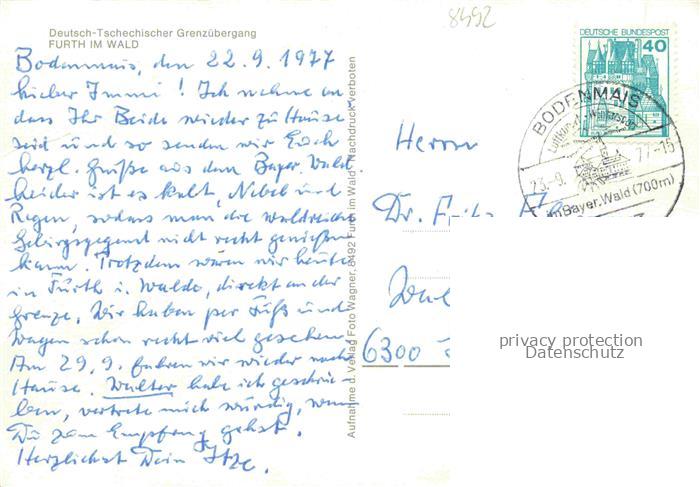 8492
Deutsch-Tschechischer Grenzübergang
FURTH IM WALD
DEUTSCHE BUNDESPOST
40
BODENMAIS
23.-9. 77-15
im Bayer. Wald (700m)
Bodenmais, den 22.9.1977
Lieber Immi! Ich nehme an
dass Ihr Beide wieder zu Hause
seid und so senden wir Euch
herzl. Grüße aus dem Bayer. Wald
leider ist es kalt, Nebel und
Regen, sodass man die waldreiche
Gebirgsgegend nicht recht genießen
kann. Trotzdem waren wir heute
in Furth i. Walde, direkt an der
Grenze. Wir haben per Fuß und
Wagen schon recht viel gesehen.
Am 29.9. fahren wir wieder nach
Hause. Walter habe ich geschrie-
ben, vertrete mich würdig, wenn
Du zum Empfang gehst.
Herzlichst Dein
Aufnahme d. Verlag Foto Wagner, 8492 Furth im Wald - Nachdruck verboten
Herrn
Dr. Fritz
6300
privacy protection
Datenschutz